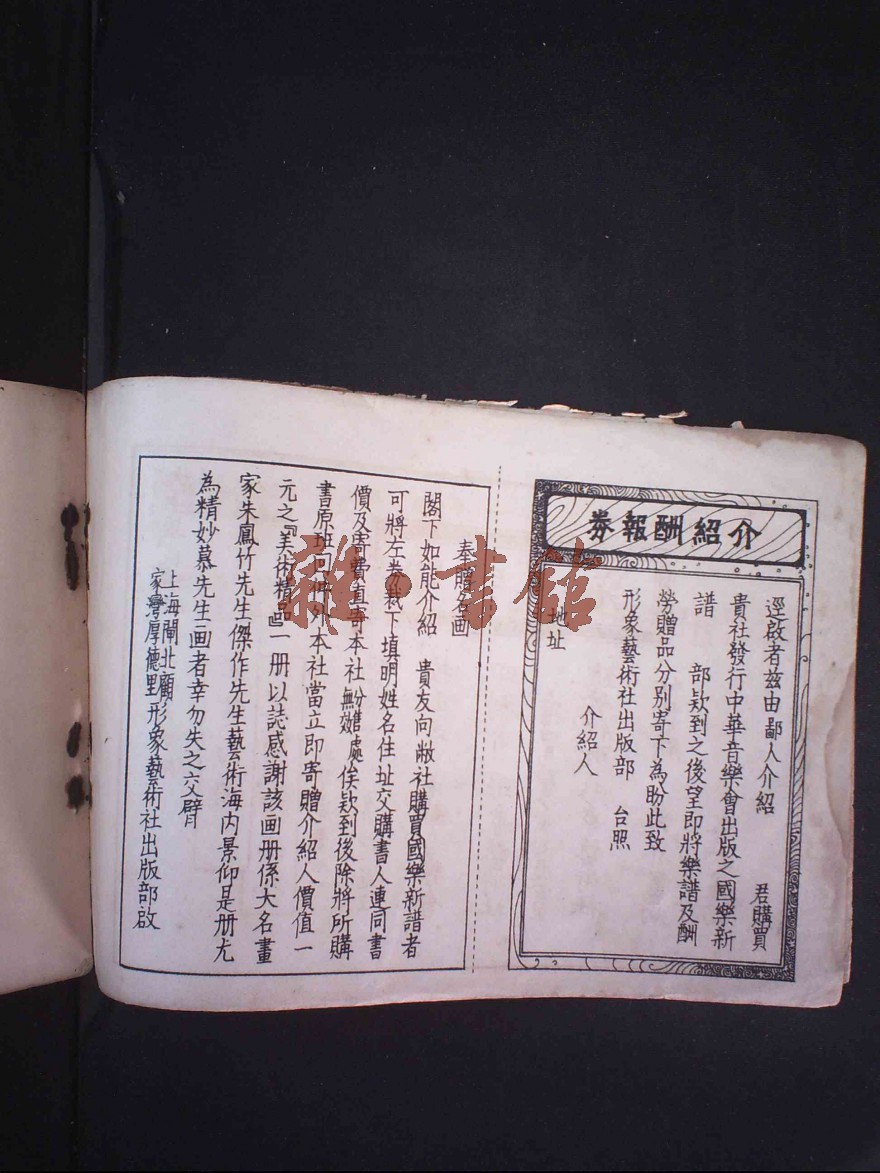 介紹酬報券
逕啟者茲由鄙人介紹　君購買
貴社發行中華音樂會出版之國樂新
譜　部欵到之後望即將樂譜及酬
勞贈品分別寄下為盼此致
形象藝術社出版部　台照
介紹人
地址
奉贈名画
閣下如能介紹　貴友向敝社購買國樂新譜者
可將左券裁下填明姓名住址交購書人連同書
價及寄費直寄本社　無效　處俟欵到後除將所購
書原班回件外本社當立即寄贈介紹人價值一
元之『美術精品』一册以誌感謝該画册係大名畫
家朱鳳竹先生傑作先生藝術海内景仰是册尤
為精妙慕先生画者幸勿失之交臂
上海閘北顧家灣厚德里形象藝術社出版部啟
雜·書館